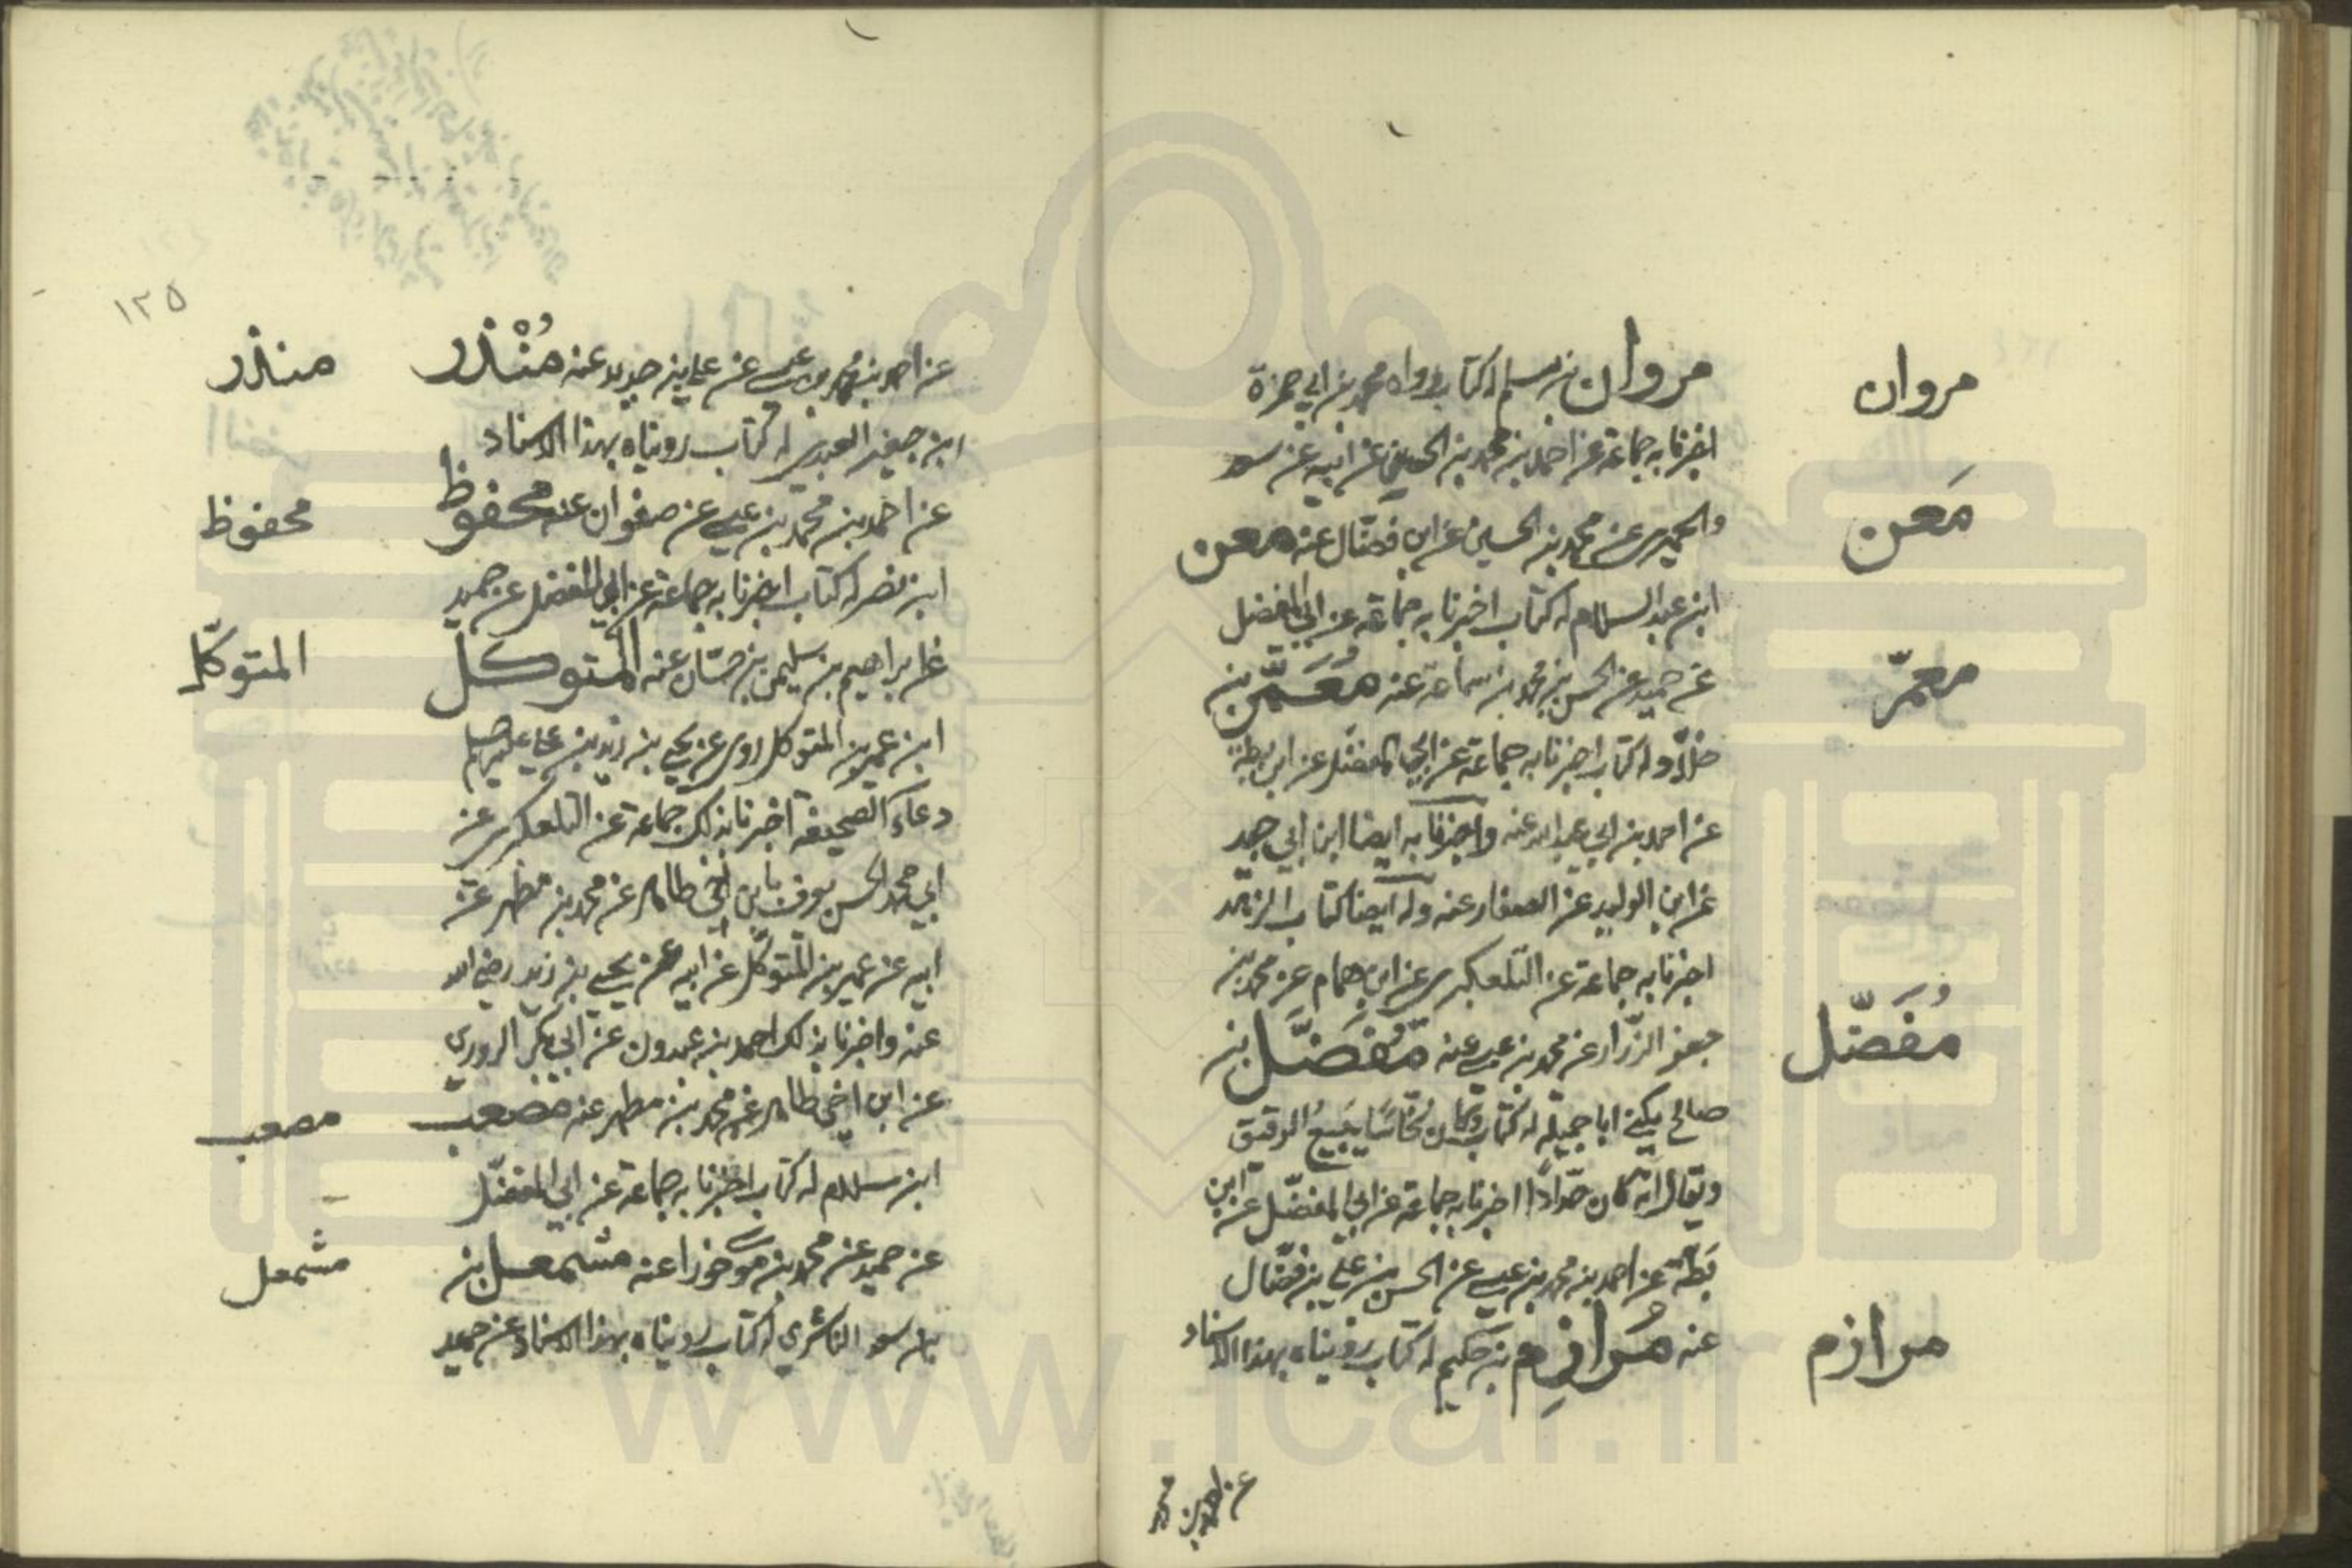 مروان
مروان بن مسلم له كتاب رواه محمد بن ابي حمزة
اخبرنا به جماعة عن احمد بن محمد بن الحسن عن ابيه عن سعد
والحميري عن محمد بن الحسين عن ابن فضّال عنه معن
مَعن
ابن عبد السلام له كتاب اخبرنا به جماعة عن ابي المفضل
عن حميد عن الحسن بن محمد بن سماعة عنه مُعَمّر بن
معمّر
خلّاد له كتاب اخبرنا به جماعة عن ابي المفضّل عن ابن بطة
عن احمد بن ابي عبد الله عنه واخبرنا به ايضا ابن ابي جيد
عن ابن الوليد عن الصفار عنه وله ايضا كتاب الزهد
اخبرنا به جماعة عن التلعكبري عن ابن همام عن محمد بن
جعفر الرزّاز عن محمد بن عيسى عنه مُفَضَّل بن
مُفَضّل
صالح يكنى ابا جميلة له كتاب وكان نخّاسًا يَبيعُ الرقيق
ويقال انه كان حدّادًا اخبرنا به جماعة عن ابي المفضّل عن ابن
بَطّة عن احمد بن محمد بن عيسى عن الحسن بن علي بن فضّال
عنه مُرازِم بن حكيم له كتاب رويناه بهذا الاسناد
مرازم
عن احمد بن محمد
١٢٥
عن احمد بن محمد بن عيسى عن علي بن حديد عنه مُنْذر
منذر
ابن جيفر العبدي له كتاب رويناه بهذا الاسناد
عن احمد بن محمد بن عيسى عن صفوان عنه محفوظ
محفوظ
ابن نصر له كتاب اخبرنا به جماعة عن ابي المفضل عن حميد
عن ابراهيم بن سليمن بن حيّان عنه المتوكل
المتوكّل
ابن عمير بن المتوكل روى عن يحيى بن زيد بن علي عليهم
دعاء الصحيفة اخبرنا بذلك جماعة عن التلعكبري عن
ابي محمد الحسن يعرف بابن اخي طاهر عن محمد بن مطهر عن
ابيه عن عمير بن المتوكّل عن ابيه عن يحيى بن زيد رضي الله
عنه واخبرنا بذلك احمد بن عبدون عن ابي بكر الدوري
عن ابن اخي طاهر عن محمد بن مطهر عنه مصعب
مصعب
ابن سلام له كتاب اخبرنا به جماعة عن ابي المفضّل
عن حميد عن محمد بن موسى خوراء عنه مشمعل بن
مشمعل
بن سعد الناشري له كتاب رويناه بهذا الاسناد عن حميد
www.ical.ir